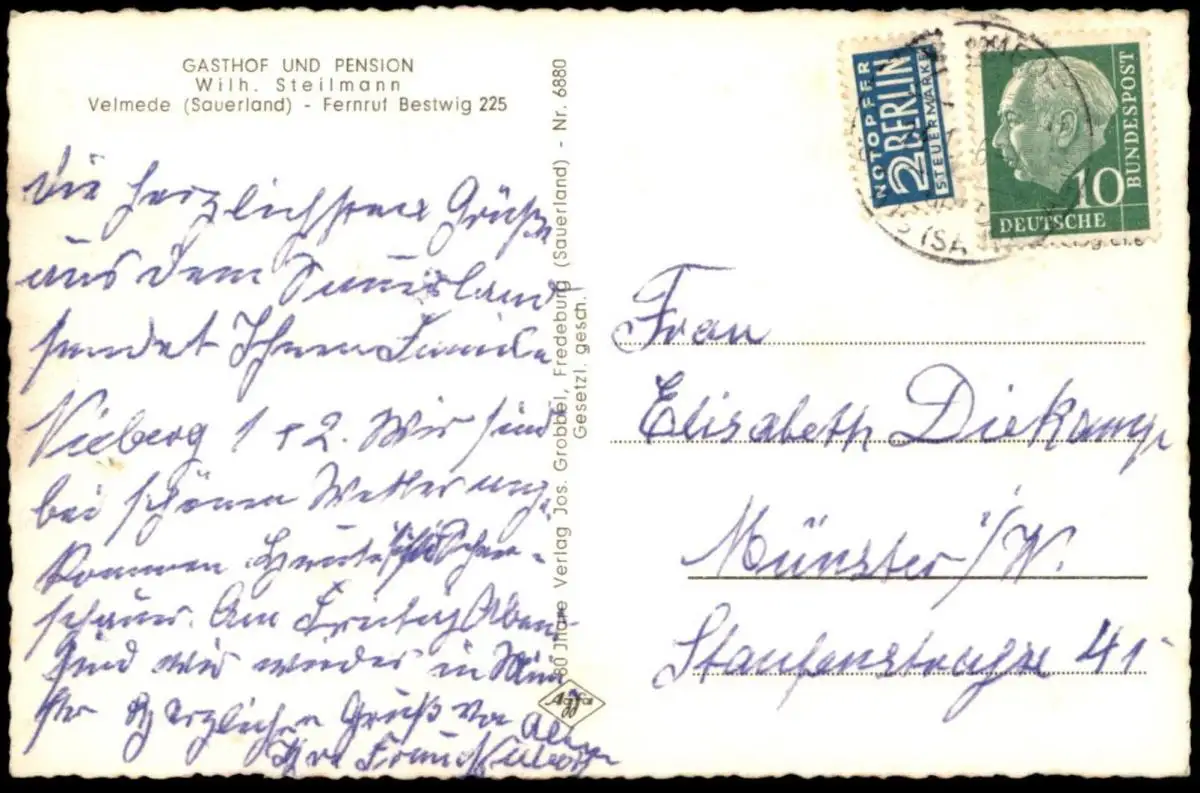 GASTHOF UND PENSION
Wilh. Steilmann
Velmede (Sauerland) - Fernruf Bestwig 225
Die herzlichsten Grüße
aus dem Sauerland
sendet Ihnen Familie
Nieberg 1 + 2. Wir sind
bei schönen Wetter ange-
kommen Heute
schauer. Am Freitag Abend
sind wir wieder in Mün
ster Herzlichen Gruß von Allen
Ihre Frau Nieberg
80 Jahre Verlag Jos. Grobbel, Fredeburg (Sauerland) - Nr. 6880
Gesetzl. gesch.
Agfa
NOTOPFER
2 BERLIN
STEUERMARKE
DEUTSCHE
BUNDESPOST
10
(SA
Frau
Elisabeth Diekamp
Münster i/W.
Staufenstraße 41